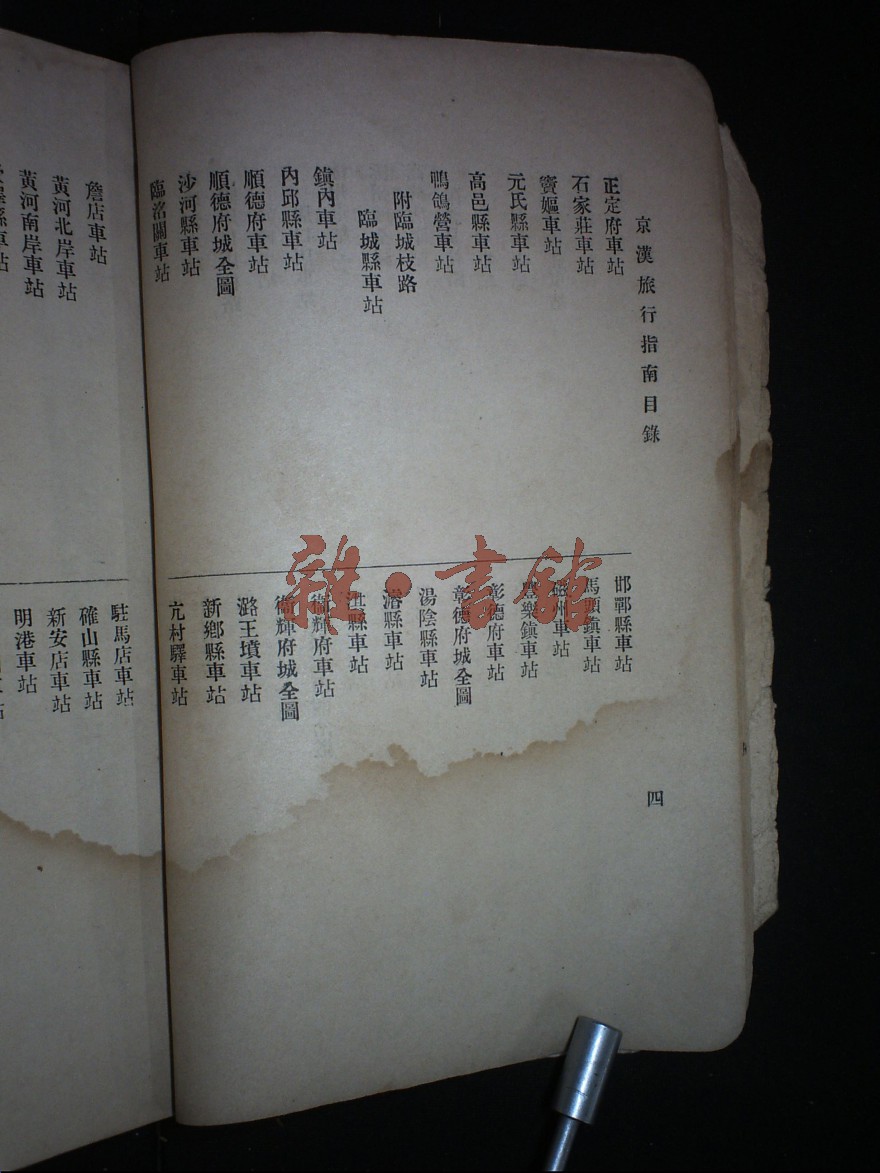 京漢旅行指南目錄
正定府車站
石家莊車站
竇嫗車站
元氏縣車站
高邑縣車站
鴨鴿營車站
附臨城枝路
臨城縣車站
鎮內車站
內邱縣車站
順德府車站
順德府城全圖
沙河縣車站
臨洺關車站
邯鄲縣車站
馬頭鎮車站
磁州車站
豐樂鎮車站
彰德府車站
彰德府城全圖
湯陰縣車站
濬縣車站
淇縣車站
衞輝府車站
衞輝府城全圖
潞王墳車站
新鄉縣車站
亢村驛車站
四
詹店車站
黃河北岸車站
黃河南岸車站
縣車站
駐馬店車站
確山縣車站
新安店車站
明港車站
雜·書館